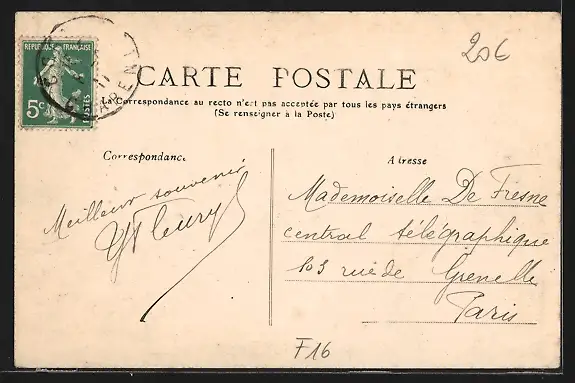 206
RÉPUBLIQUE FRANÇAISE
5c POSTES
CARTE POSTALE
La Correspondance au recto n'est pas acceptée par tous les pays étrangers
(Se renseigner à la Poste)
Correspondance
Meilleur souvenir
Fleury
Adresse
Mademoiselle De Fresne
central télégraphique
103 rue de Grenelle
Paris
F16